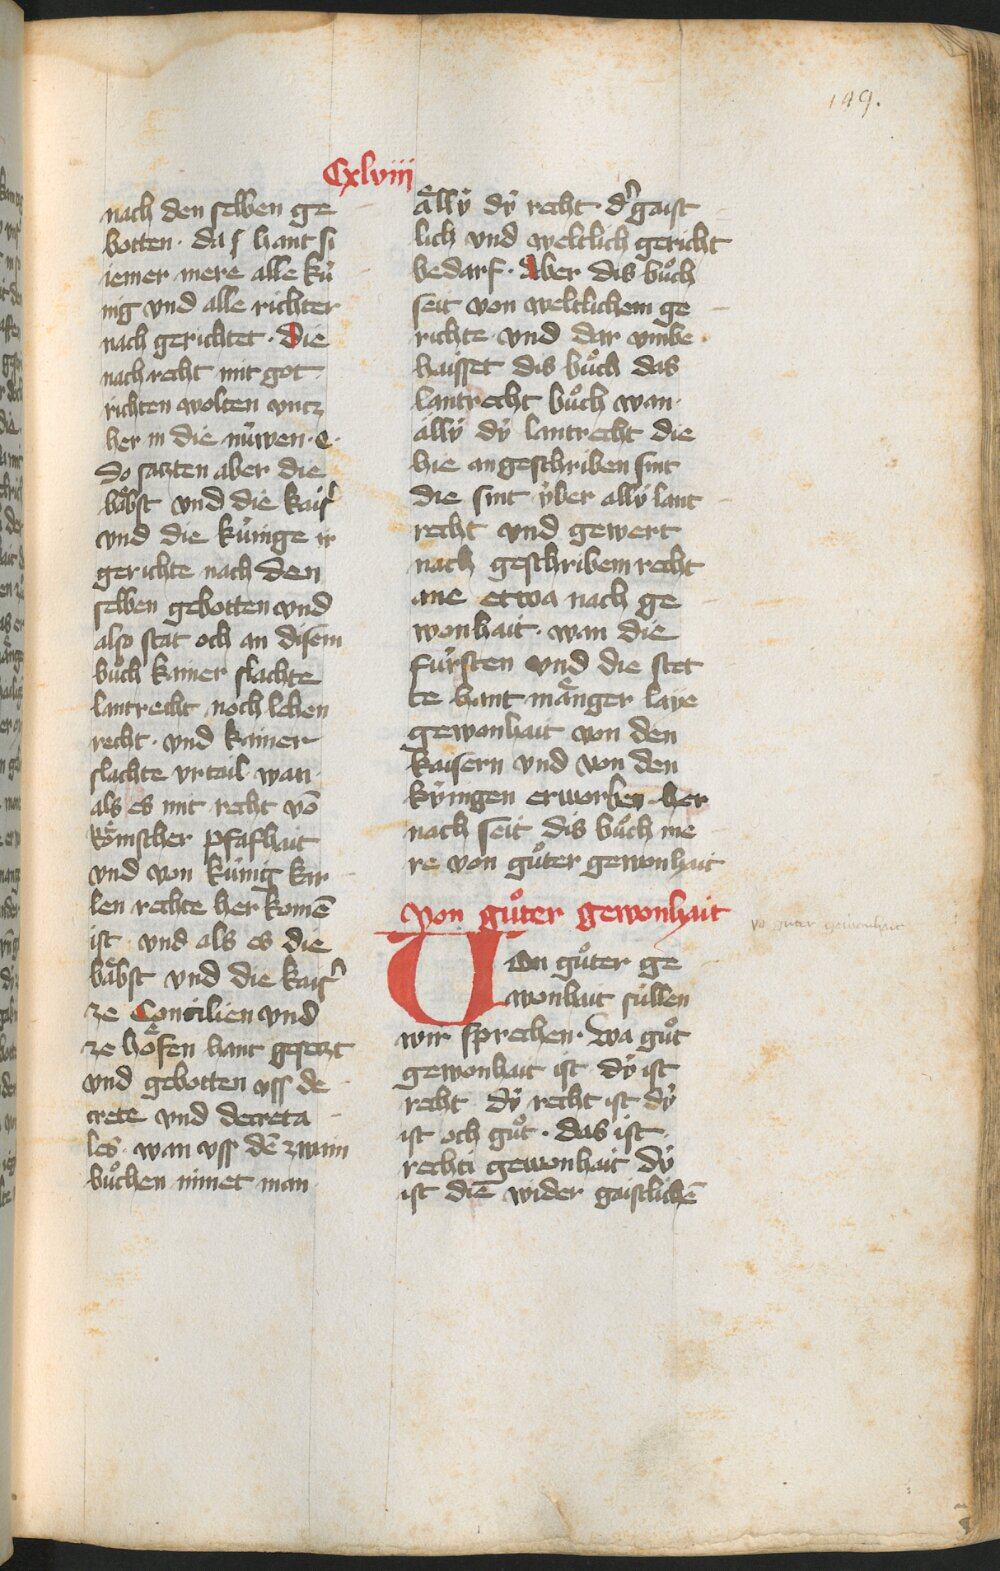 149.
Cxlviij
nach den selben ge
botten · das hant si
iemer mere alle kú
nig vnd alle richter
nach gerichtet · Die
nach recht mit got
richten wolten vntz
her in die núwen · e ·
So satzten aber die
bäbst vnd die kaiẜ
vnd die kúnige ir
gerichte nach den
selben gebotten vnd
also stat och an disem
bůch kainer slachte
lantrecht noch lehen
recht · vnd kainer
slachte vrtail wan
als es mit recht võ
Römscher pfafhait
vnd von kúnig kar
len rechte her komẽ
ist vnd als es die
bäbst vnd die kaiẜ
ze Concilien vnd
ze höfen hant gesetzt
vnd gebotten vss de
crete vnd decreta
les · wan vss dẽ zwain
bůchen nimet man
ällÿ dÿ recht dˀ gaist
lich vnd weltlich gericht
bedarf · Aber dis bůch
seit von weltlichem ge
richte vnd dar vmbe ·
haisset dis bůch das
lantrecht bůch wan ·
ällÿ dÿ lantrecht die
hie an geschriben sint
die sint ÿber allÿ lant
recht vnd gewert
nach geschribem recht
ane etwa nach ge
wonhait · wan die
fúrsten vnd die stet
te hant mänger laye
gewonhait von den
kaisern vnd von den
kÿnigen erworben · her
nach seit dis bůch me
re von gůter gewonhait
Von gůter gewonhait
vo guter gewonhait
Von gůter ge
wonhait súllen
wir sprechen · Wa gůt
gewonhait ist dÿ ist
recht dÿ recht ist dÿ
ist och gůt · das ist
rechti gewonhait dÿ
ist diẽ wider gaistlichẽ